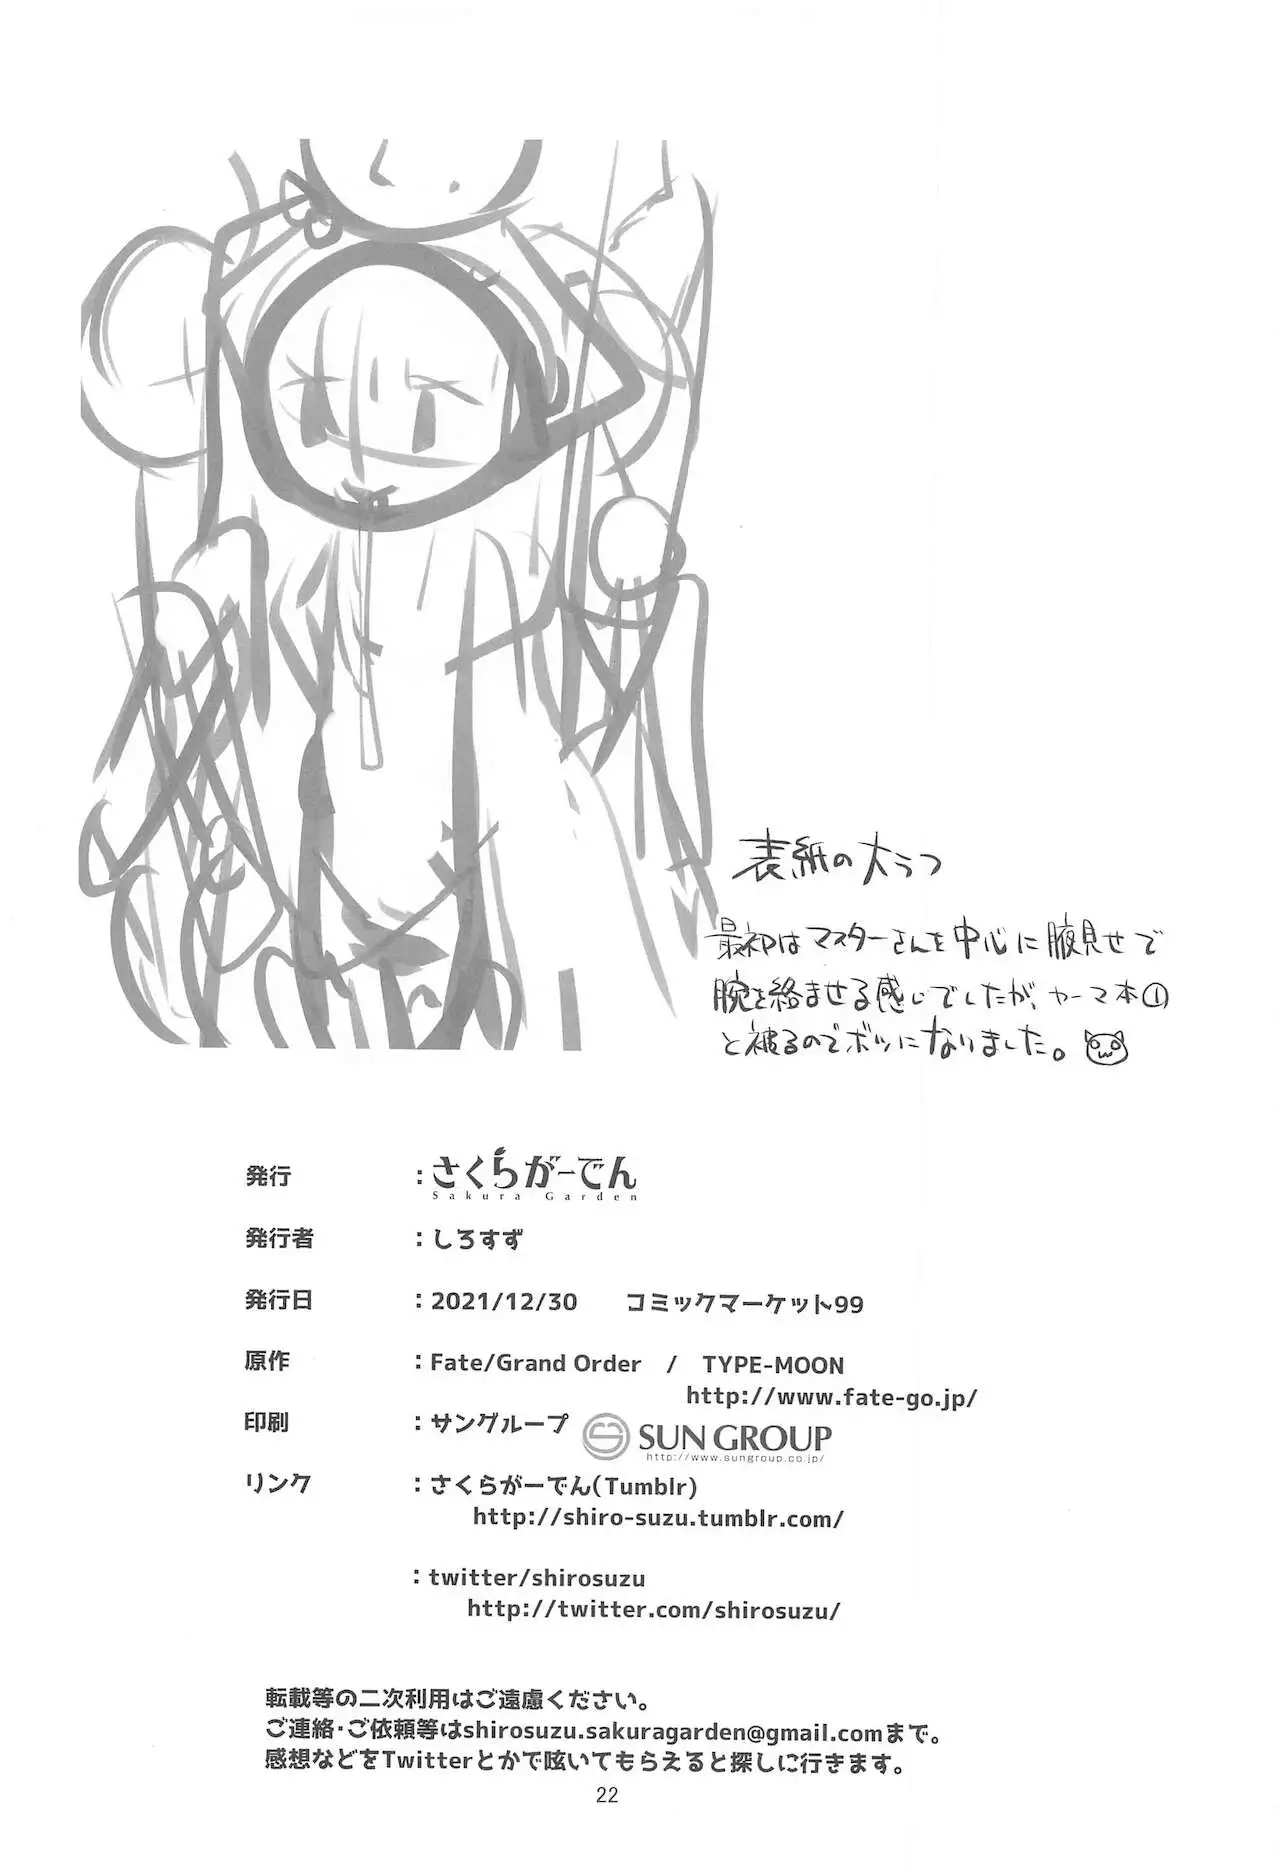 表紙の大ラフ
最初はマスターさんを中心に腋見せで
腕を絡ませる感じでしたが、カーマ本①
と被るのでボツになりました。
発行 :さくらがーでん
Sakura Garden
発行者 :しろすず
発行日 :2021/12/30 コミックマーケット99
原作 :Fate/Grand Order / TYPE-MOON
http://www.fate-go.jp/
印刷 :サングループ SUN GROUP
http://www.sungroup.co.jp/
リンク :さくらがーでん(Tumblr)
http://shiro-suzu.tumblr.com/
:twitter/shirosuzu
http://twitter.com/shirosuzu/
転載等の二次利用はご遠慮ください。
ご連絡・ご依頼等はshirosuzu.sakuragarden@gmail.comまで。
感想などをTwitterとかで呟いてもらえると探しに行きます。
22